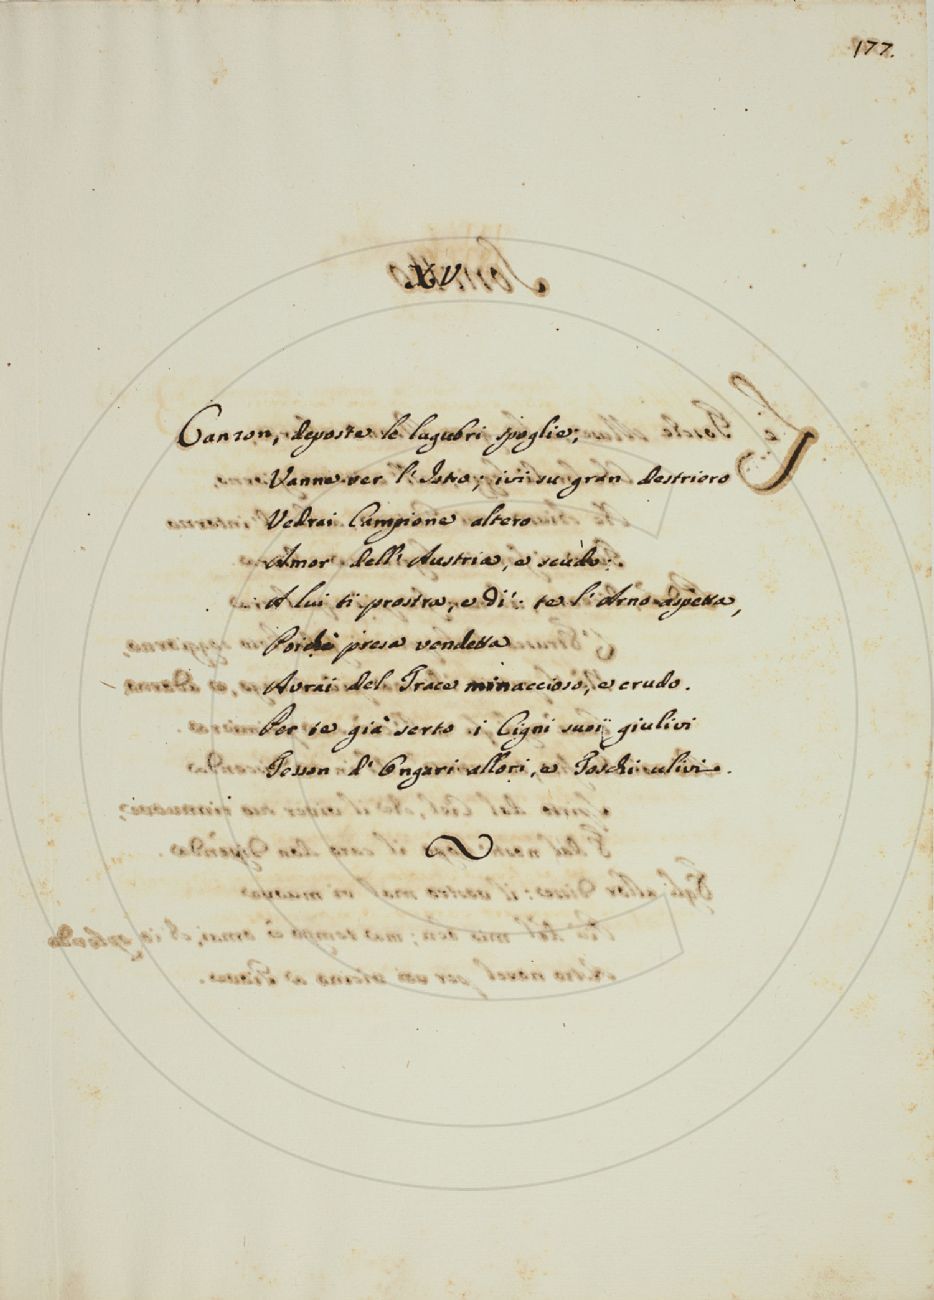 177.
XV.
Canzon, deposte le lugubri spoglie,
Vanne ver l' Istro; ivi su gran destriero
Vedrai Campione altero
Amor dell' Austria, e scudo.
A lui ti prostra, e di': te l' Arno aspetta,
Poichè presa vendetta
Avrai del Trace minaccioso, e crudo.
Per te già serto i Cigni suoi giulivi
Tesson d' Ongari allori, e Toschi ulivi.